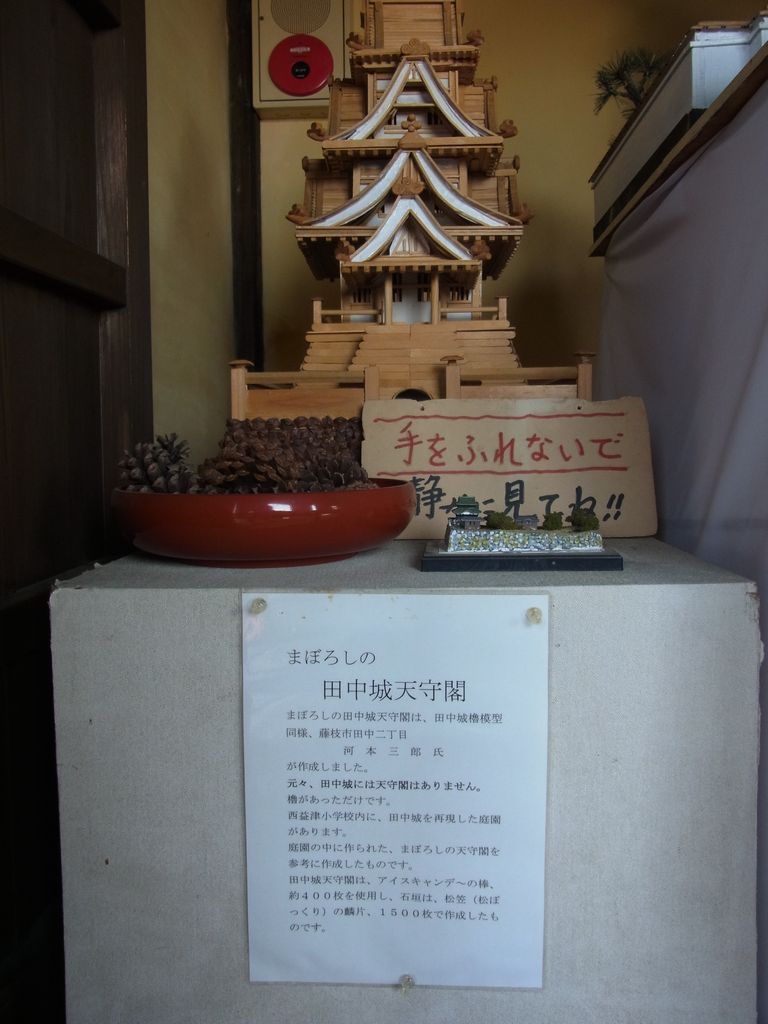 手をふれないで
静かに見てね!!
まぼろしの
田中城天守閣
まぼろしの田中城天守閣は、田中城櫓模型
同様、藤枝市田中二丁目
河 本 三 郎 氏
が作成しました。
元々、田中城には天守閣はありません。
櫓があっただけです。
西益津小学校内に、田中城を再現した庭園
があります。
庭園の中に作られた、まぼろしの天守閣を
参考に作成したものです。
田中城天守閣は、アイスキャンデ～の棒、
約４００枚を使用し、石垣は、松笠（松ぼ
っくり）の鱗片、１５００枚で作成したも
のです。